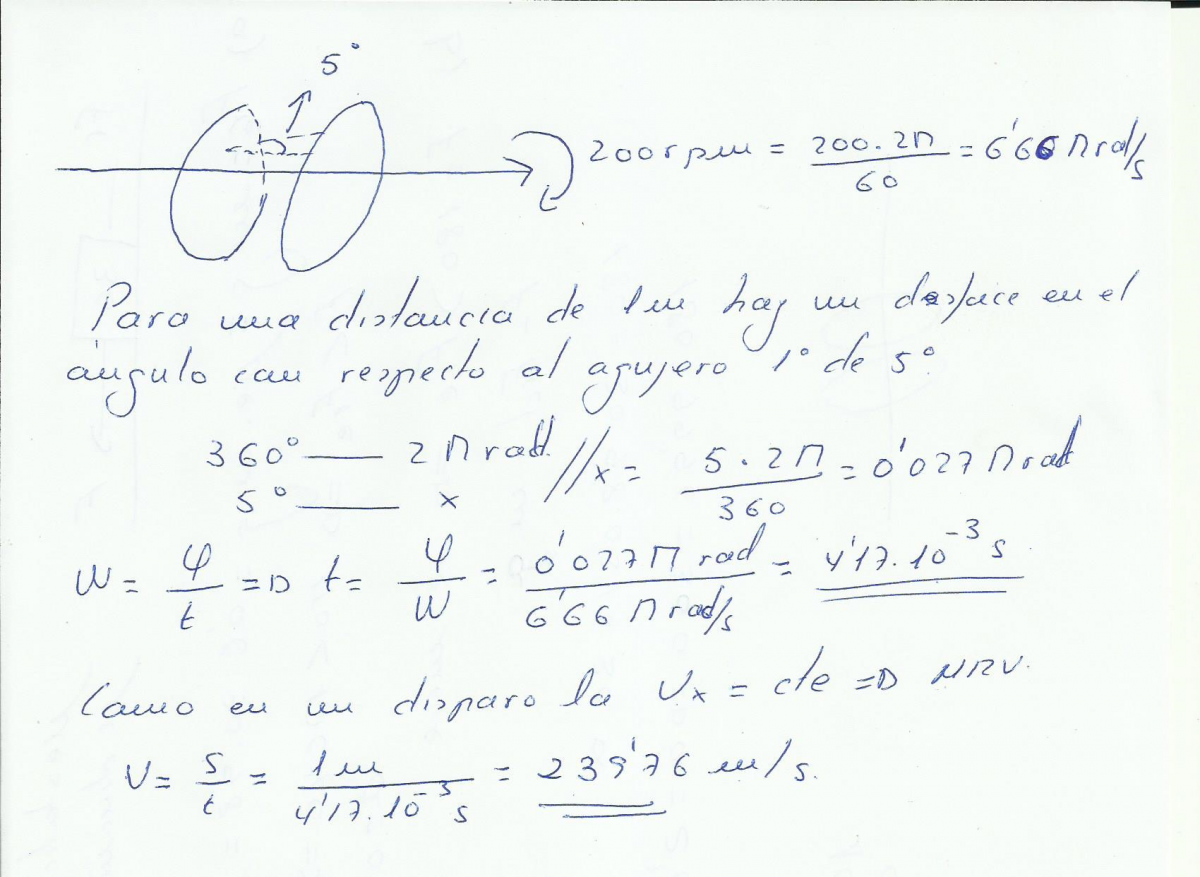 5°
200rpm = 200·2π/60 = 6'66 π rad/s
Para una distancia de 1m hay un desfase en el
ángulo con respecto al agujero 1° de 5°.
360° —— 2π rad. // x = 5·2π/360 = 0'027 π rad
5° —— x
W = φ/t => t = φ/W = 0'027π rad/6'66 π rad/s = 4'17·10⁻³ s
Como en un disparo la Vx = cte => MRU.
V = s/t = 1m/4'17·10⁻³ s = 239'76 m/s.